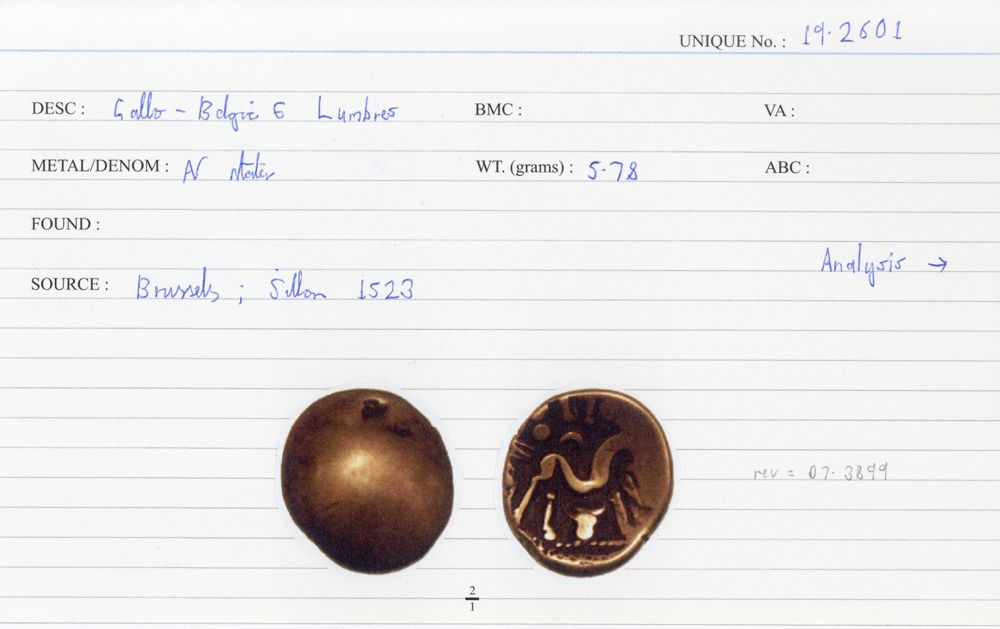 UNIQUE No. : 19.2601
DESC : Gallo-Belgic G Lumbres BMC : VA :
METAL/DENOM : AV stater WT. (grams) : 5.78 ABC :
FOUND :
Analysis →
SOURCE : Brussels ; Sillon 1523
rev = 07.3899
2
1